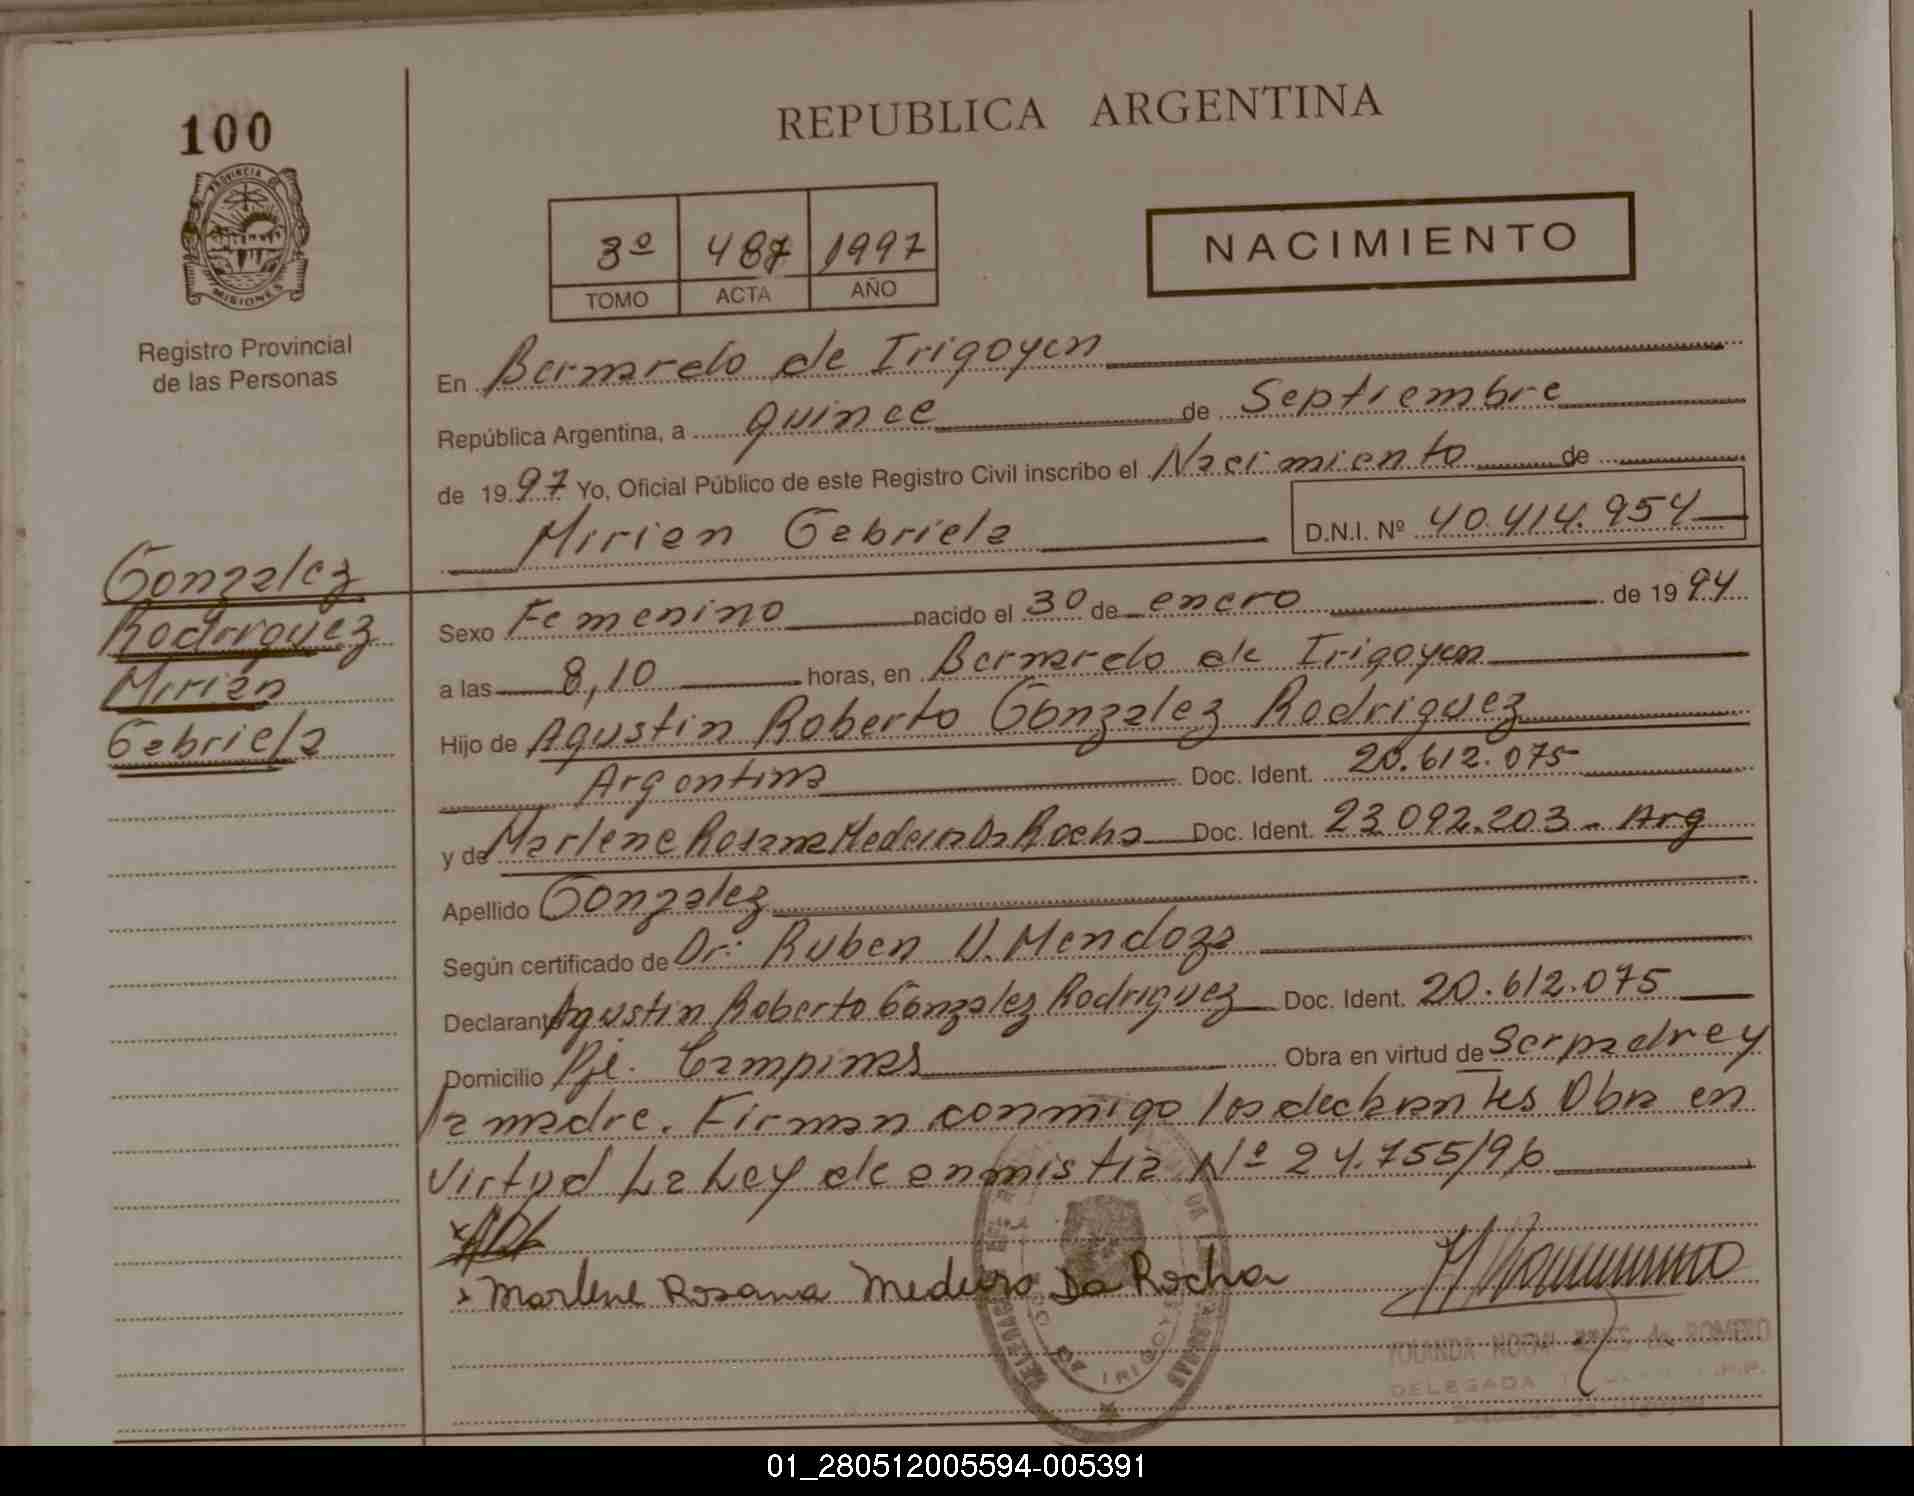 100
PROVINCIA DE
MISIONES
Registro Provincial
de las Personas
Gonzalez
Rodriguez
Mirian
Gabriela
REPUBLICA ARGENTINA
3º 487 1997
TOMO ACTA AÑO
NACIMIENTO
En Bernardo de Irigoyen
República Argentina, a quince de Septiembre
de 1997 Yo, Oficial Público de este Registro Civil inscribo el Nacimiento de
Mirian Gabriela D.N.I. Nº 40.414.954
Sexo Femenino nacido el 30 de enero de 1994
a las 8,10 horas, en Bernardo de Irigoyen
Hijo de Agustin Roberto Gonzalez Rodriguez
Argentina Doc. Ident. 20.612.075
y de Marlene Rosana Medeiro Da Rocha Doc. Ident. 23.092.203 - Arg
Apellido Gonzalez
Según certificado de Dr: Ruben N. Mendoza
Declarante Agustin Roberto Gonzalez Rodriguez Doc. Ident. 20.612.075
Domicilio Pje. Campinas Obra en virtud de Ser padre y
la madre. Firman conmigo los declarantes Obra en
virtud La Ley de anmistia Nº 24.755/96
x
x Marlene Rosana Medeiro Da Rocha
YOLANDA de ROMERO
DELEGADA
IRIGOYEN
01_280512005594-005391